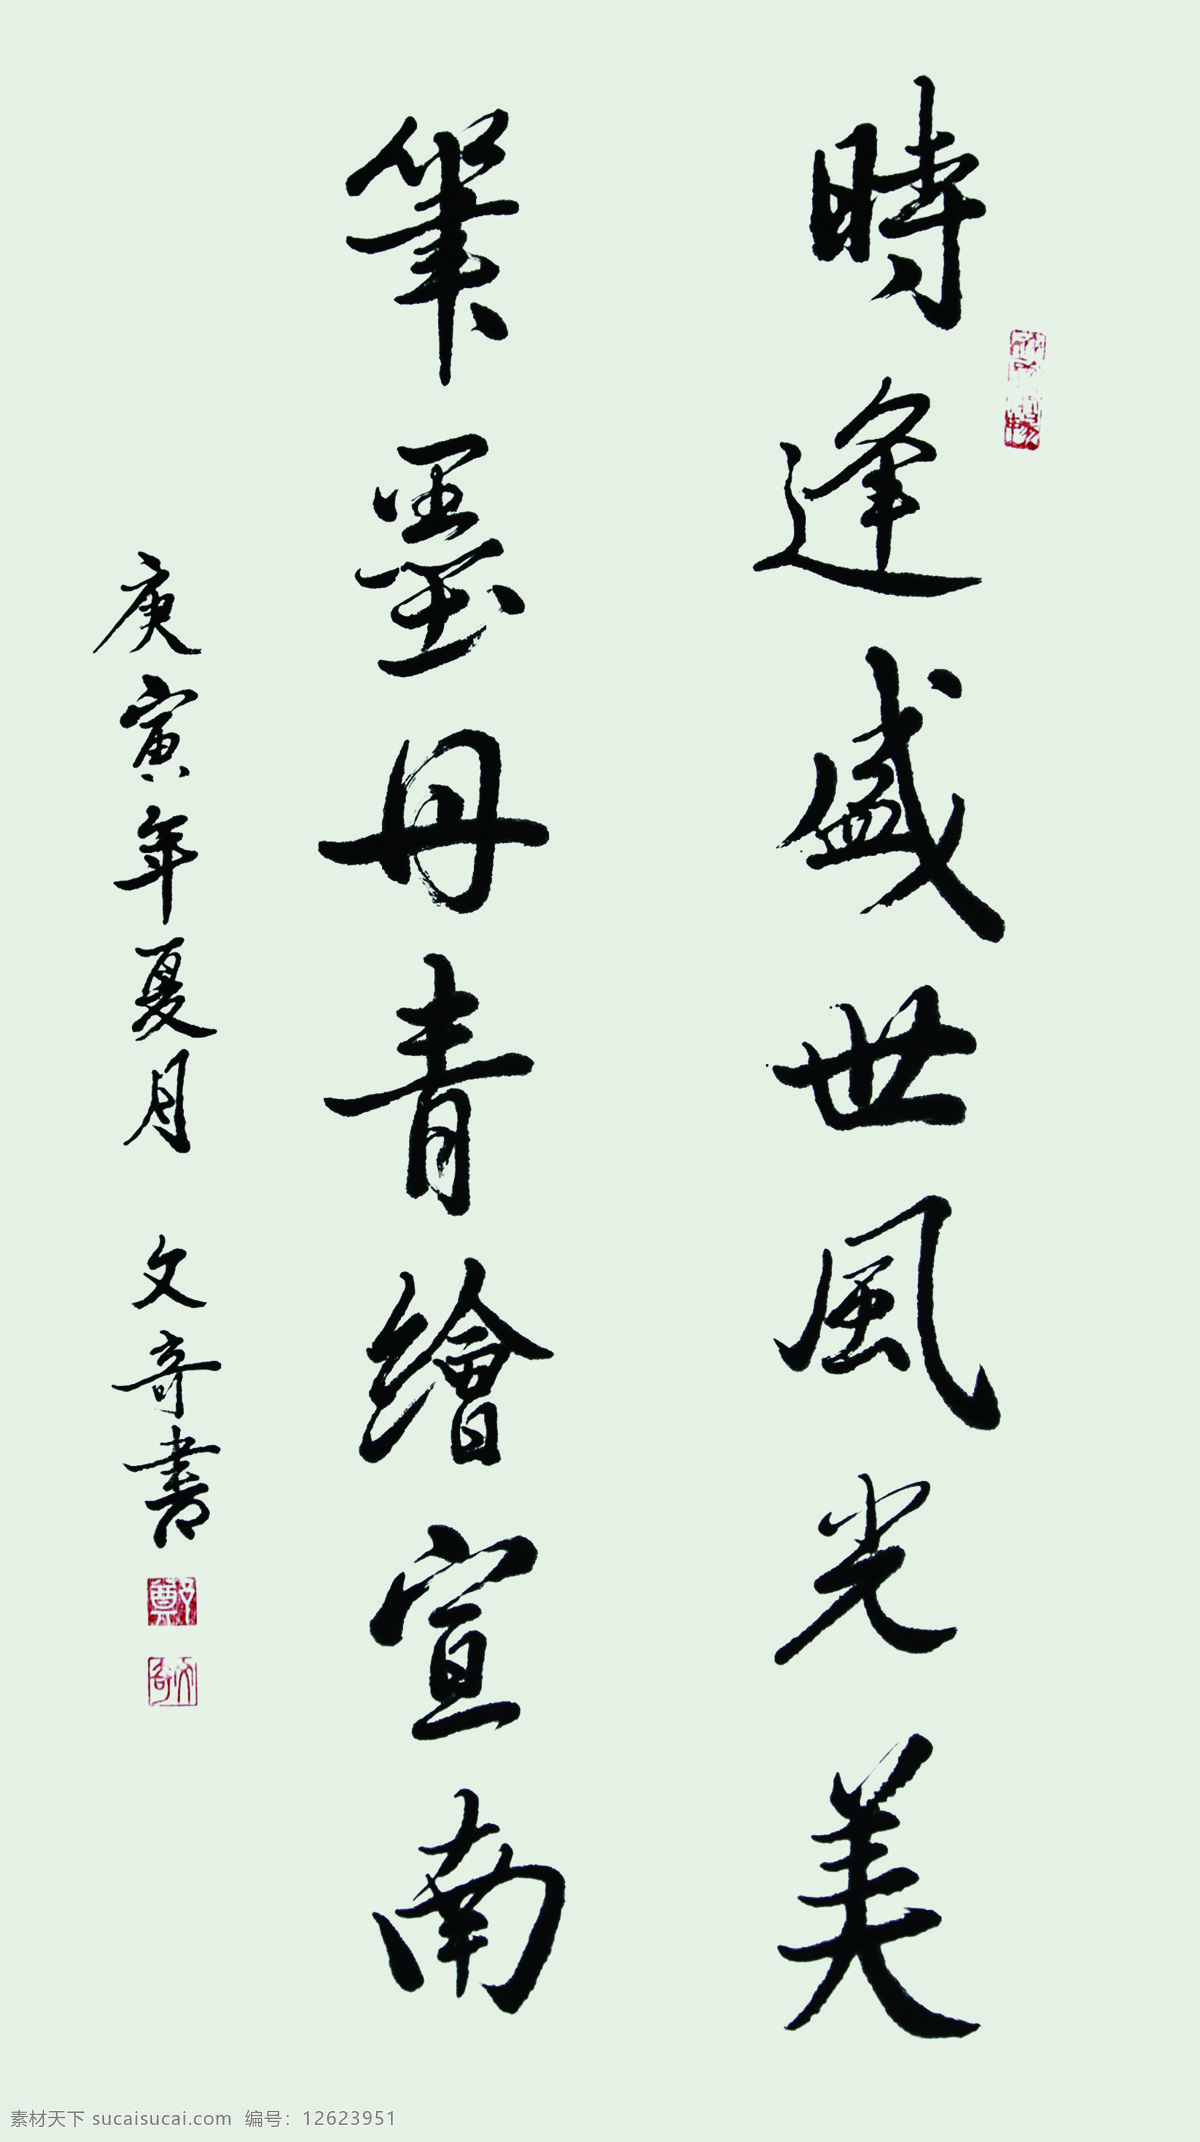 時逢盛世風光美
筆墨丹青繪宣南
庚寅年夏月 文奇書
素材天下 sucaisucai.com 编号：12623951